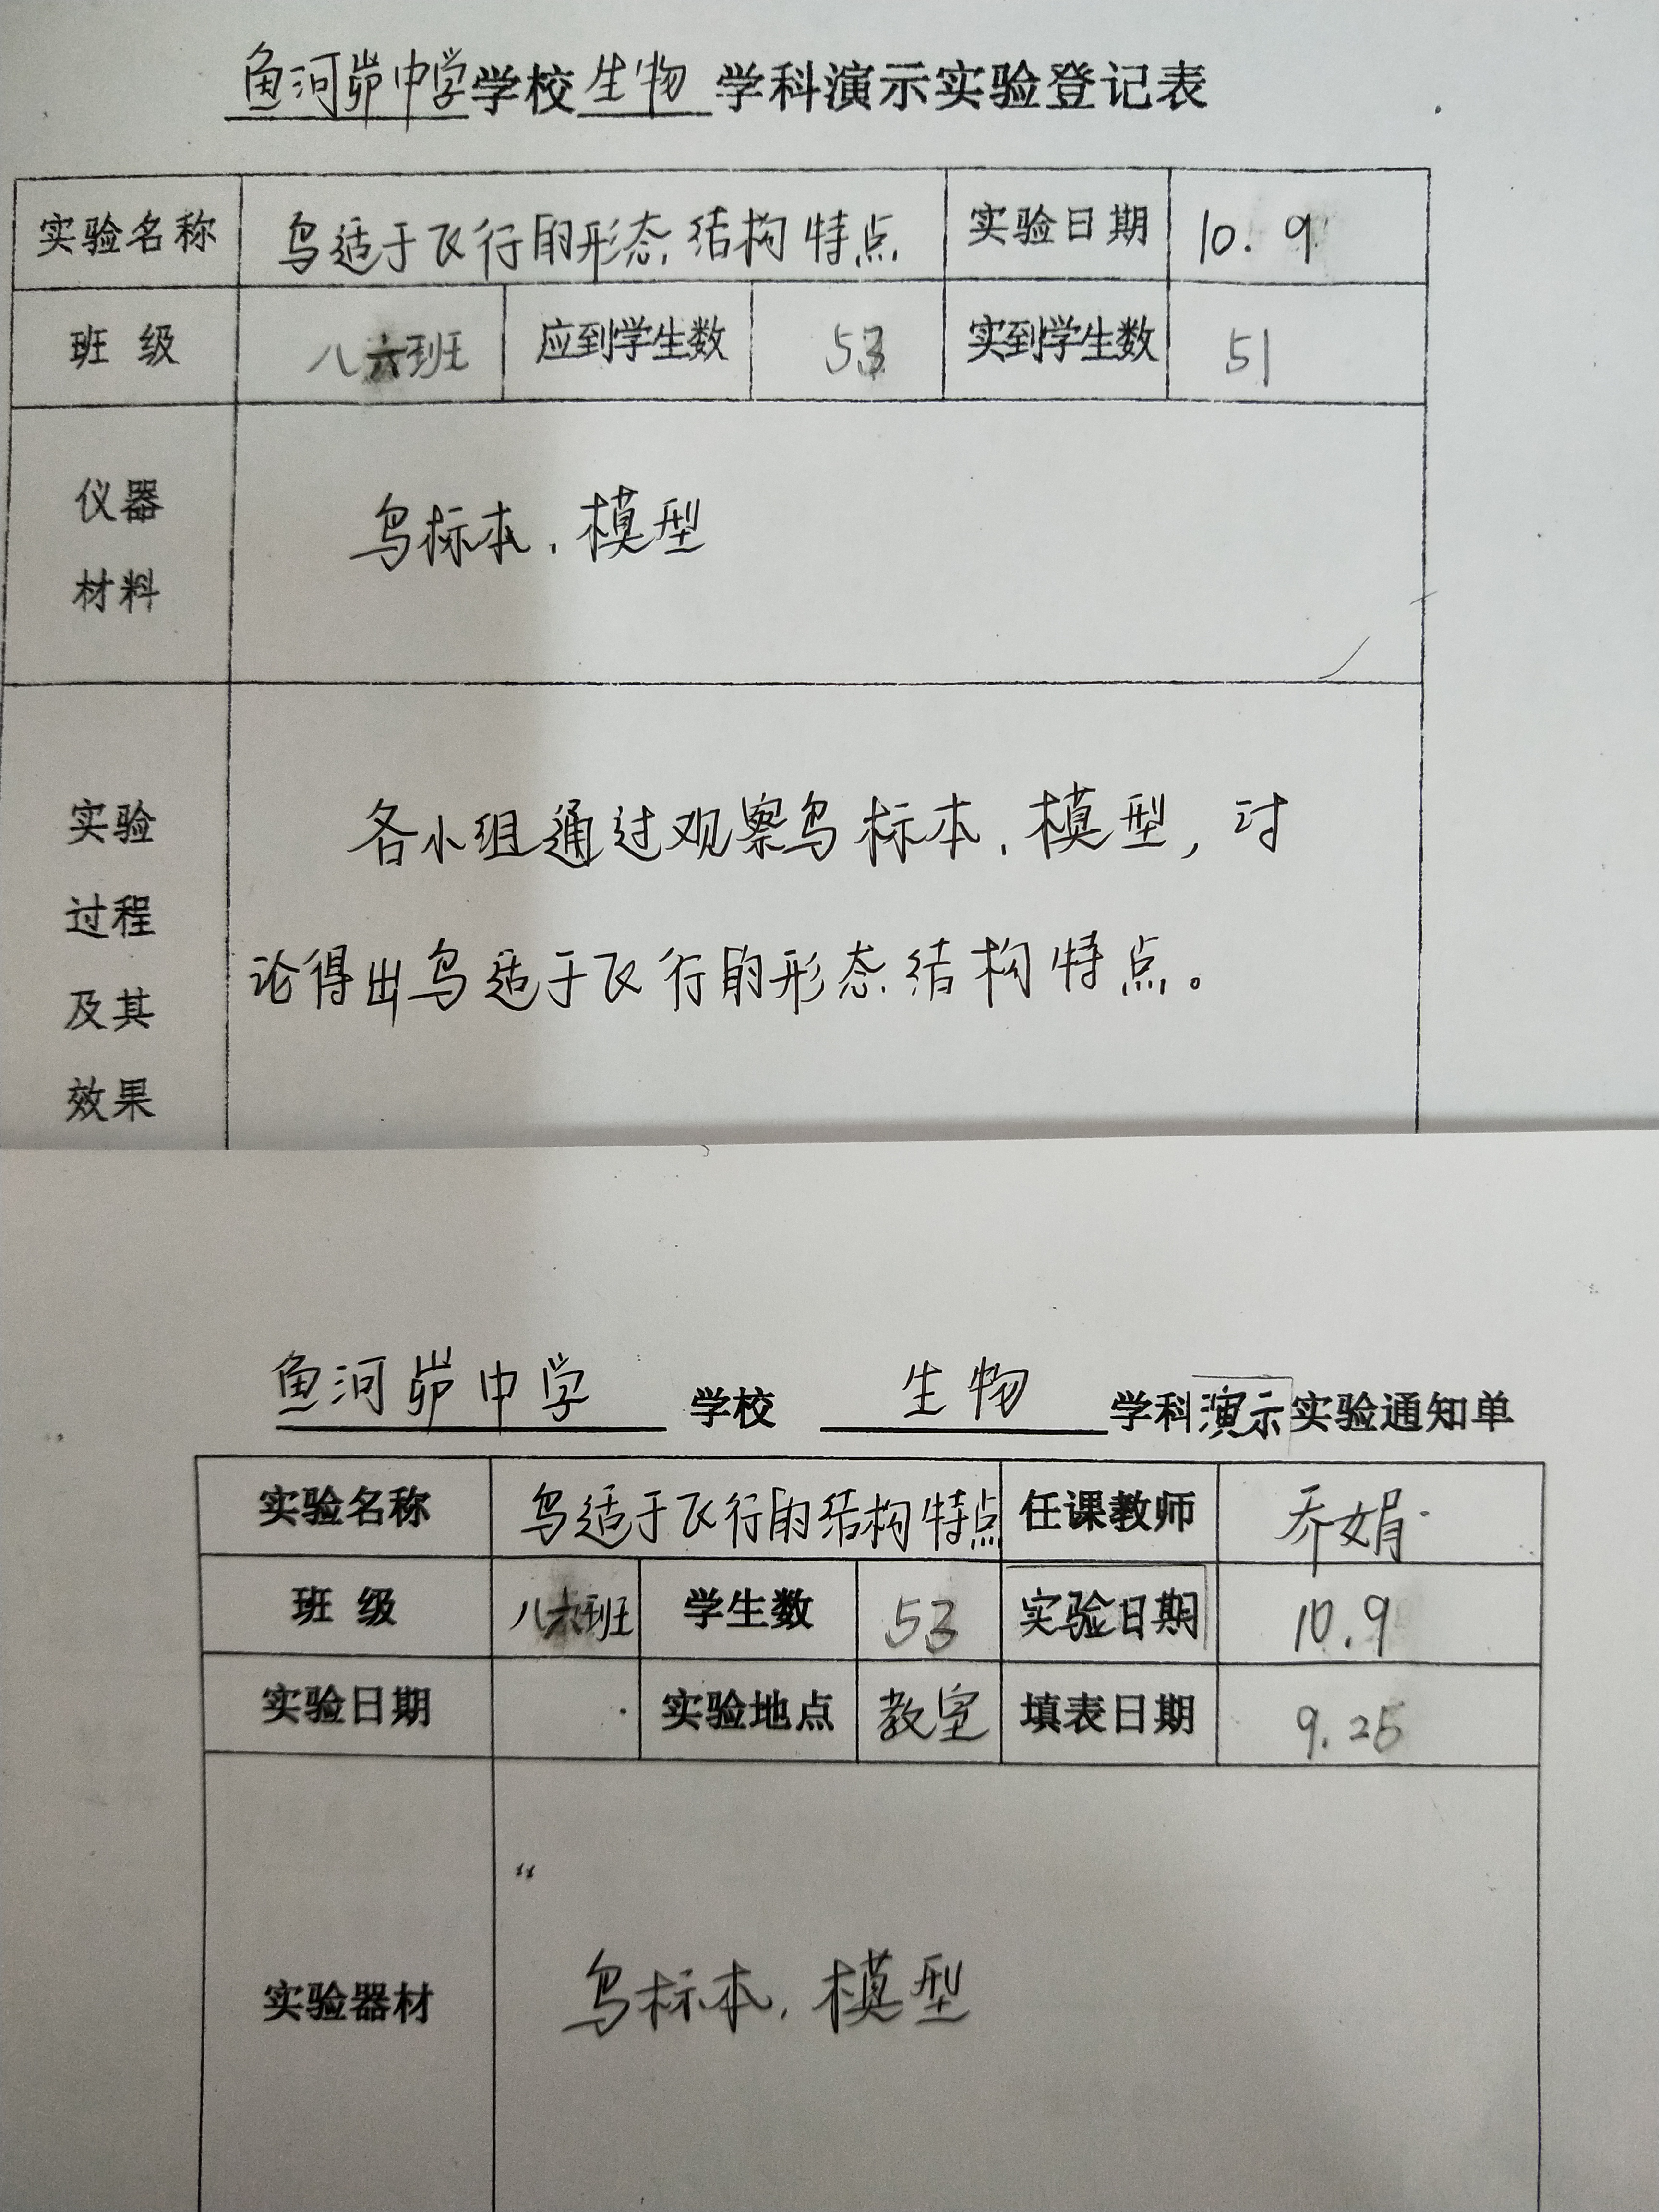 鱼河峁中学学校生物学科演示实验登记表
实验名称 鸟适于飞行的形态结构特点 实验日期 10.9
班 级 八六班 应到学生数 53 实到学生数 51
仪器
材料
鸟标本、模型
实验
过程
及其
效果
各小组通过观察鸟标本、模型,讨
论得出鸟适于飞行的形态结构特点。
鱼河峁中学 学校 生物 学科演示实验通知单
实验名称 鸟适于飞行的结构特点 任课教师 乔娟
班 级 八六班 学生数 53 实验日期 10.9
实验日期 实验地点 教室 填表日期 9.25
实验器材 鸟标本、模型